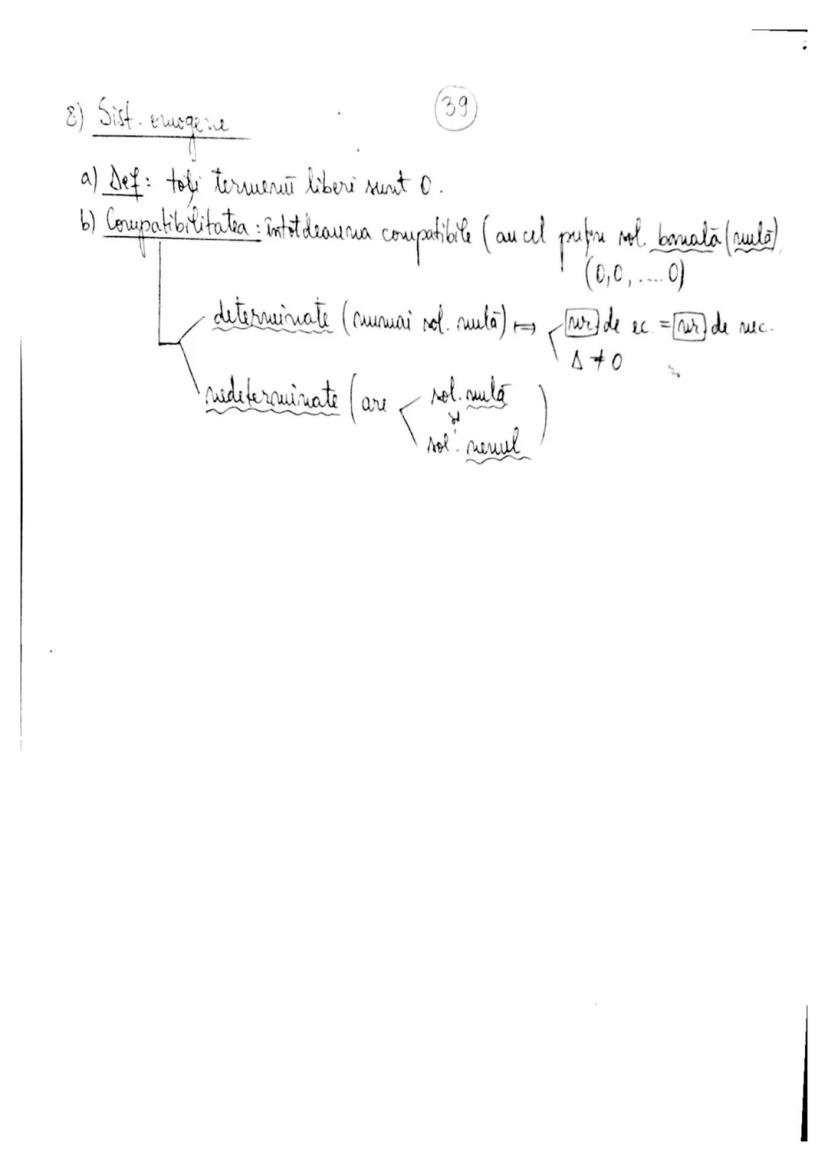 39
8) Sist. omogene
a) Def: toți termenii liberi sunt 0.
b) Compatibilitatea: întotdeauna compatibile (au cel puțin sol. banală (nulă)
(0,0, .... 0)
determinate (numai sol. nulă) ⟺ nr de ec. = nr de nec.
Δ ≠ 0
nedeterminate (are sol. nulă
și
sol. nenul )